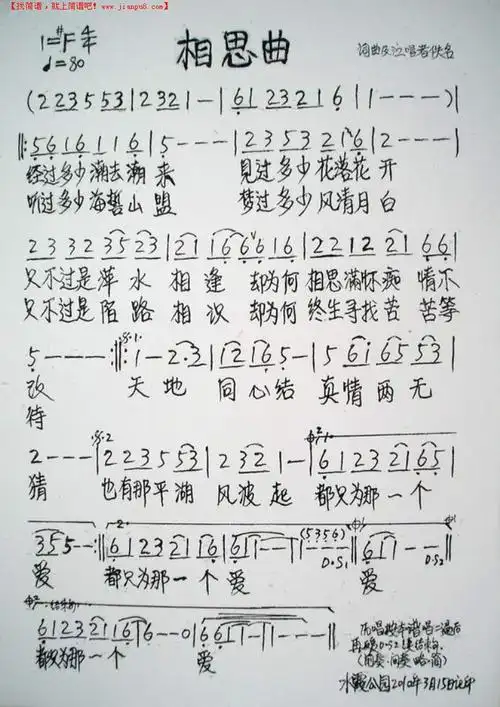 【找简谱,就上简谱吧!】
www.jianpu8.com
1=#F 4/4
♩=80
相思曲
词曲及泣唱者佚名
(2 2 3 5 5 3 | 2 3 2 1 — | 6 1 2 3 2 1 6 | 1 — — — )|
‖: 5 6 1 6 1 1 6 | 5 — — — | 2 3 5 3 2 1 6 | 2 — — — |
经过多少潮去潮来 见过多少花落花开
听过多少海誓山盟 梦过多少风清月白
2 3 3 2 3 5 2 3 | 2 1 1 6 6 6 1 6 | 2 2 1 2 2 2 1 6 6 |
只不过是萍水相逢 却为何相思满怀痴情不
只不过是陌路相识 却为何终生寻找苦苦等
5 — — — :‖: 1 — 2·3 | 1 2 1 6 5 — | 5 6 1 6 5 5 3 |
改 天地同心结 真情两无
待
2 — — — | 2 2 3 5 5 3 | 2 3 2 1 — | 6 1 2 3 2 1 6 5 |
猜 也有那平湖风波起 都只为那一个
3 5 5 — — :‖ 6 1 2 3 2 1 1 6 | 6 1 1 — — | 1 — — (5 3 5 6) D.S1 ‖ 6 1 1 — — D.S2 ‖
爱 都只为那一个爱 爱
结束句
6 1 2 3 2 1 1 6 | 6 — — 0 | 6 6 1 1 — — | 1 — — — ‖
都只为那一个 爱
水霞公园2010年3月15日记印